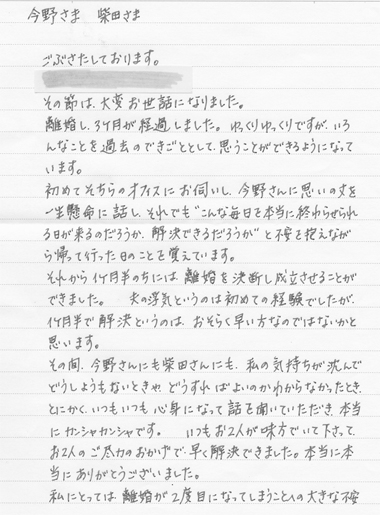 今野さま 柴田さま
ごぶさたしております。
その節は、大変お世話になりました。
離婚し、3ケ月が経過しました。ゆっくりゆっくりですが、いろ
んなことを過去のできごととして、思うことができるようになって
います。
初めてそちらのオフィスにお伺いし、今野さんに思いの丈を
一生懸命に話し、それでも"こんな毎日を本当に終わらせられ
る日が来るのだろうか、解決できるだろうか"と不安を抱えなが
ら帰って行った日のことを覚えています。
それから1ケ月半のちには離婚を決断し成立させることが
できました。 夫の浮気というのは初めての経験でしたが、
1ケ月半で解決というのは、おそらく早い方なのではないかと
思います。
その間、今野さんにも柴田さんにも、私の気持ちが沈んで
どうしようもないときや、どうすればよいのかわからなかったとき、
とにかく、いつもいつも心身になって話を聞いていただき、本当
にカンシャカンシャです。 いつもお2人が味方でいて下さって、
お2人のご尽力のおかげで、早く解決できました。本当に本
当にありがとうございました。
私にとっては離婚が2度目になってしまうことへの大きな不安